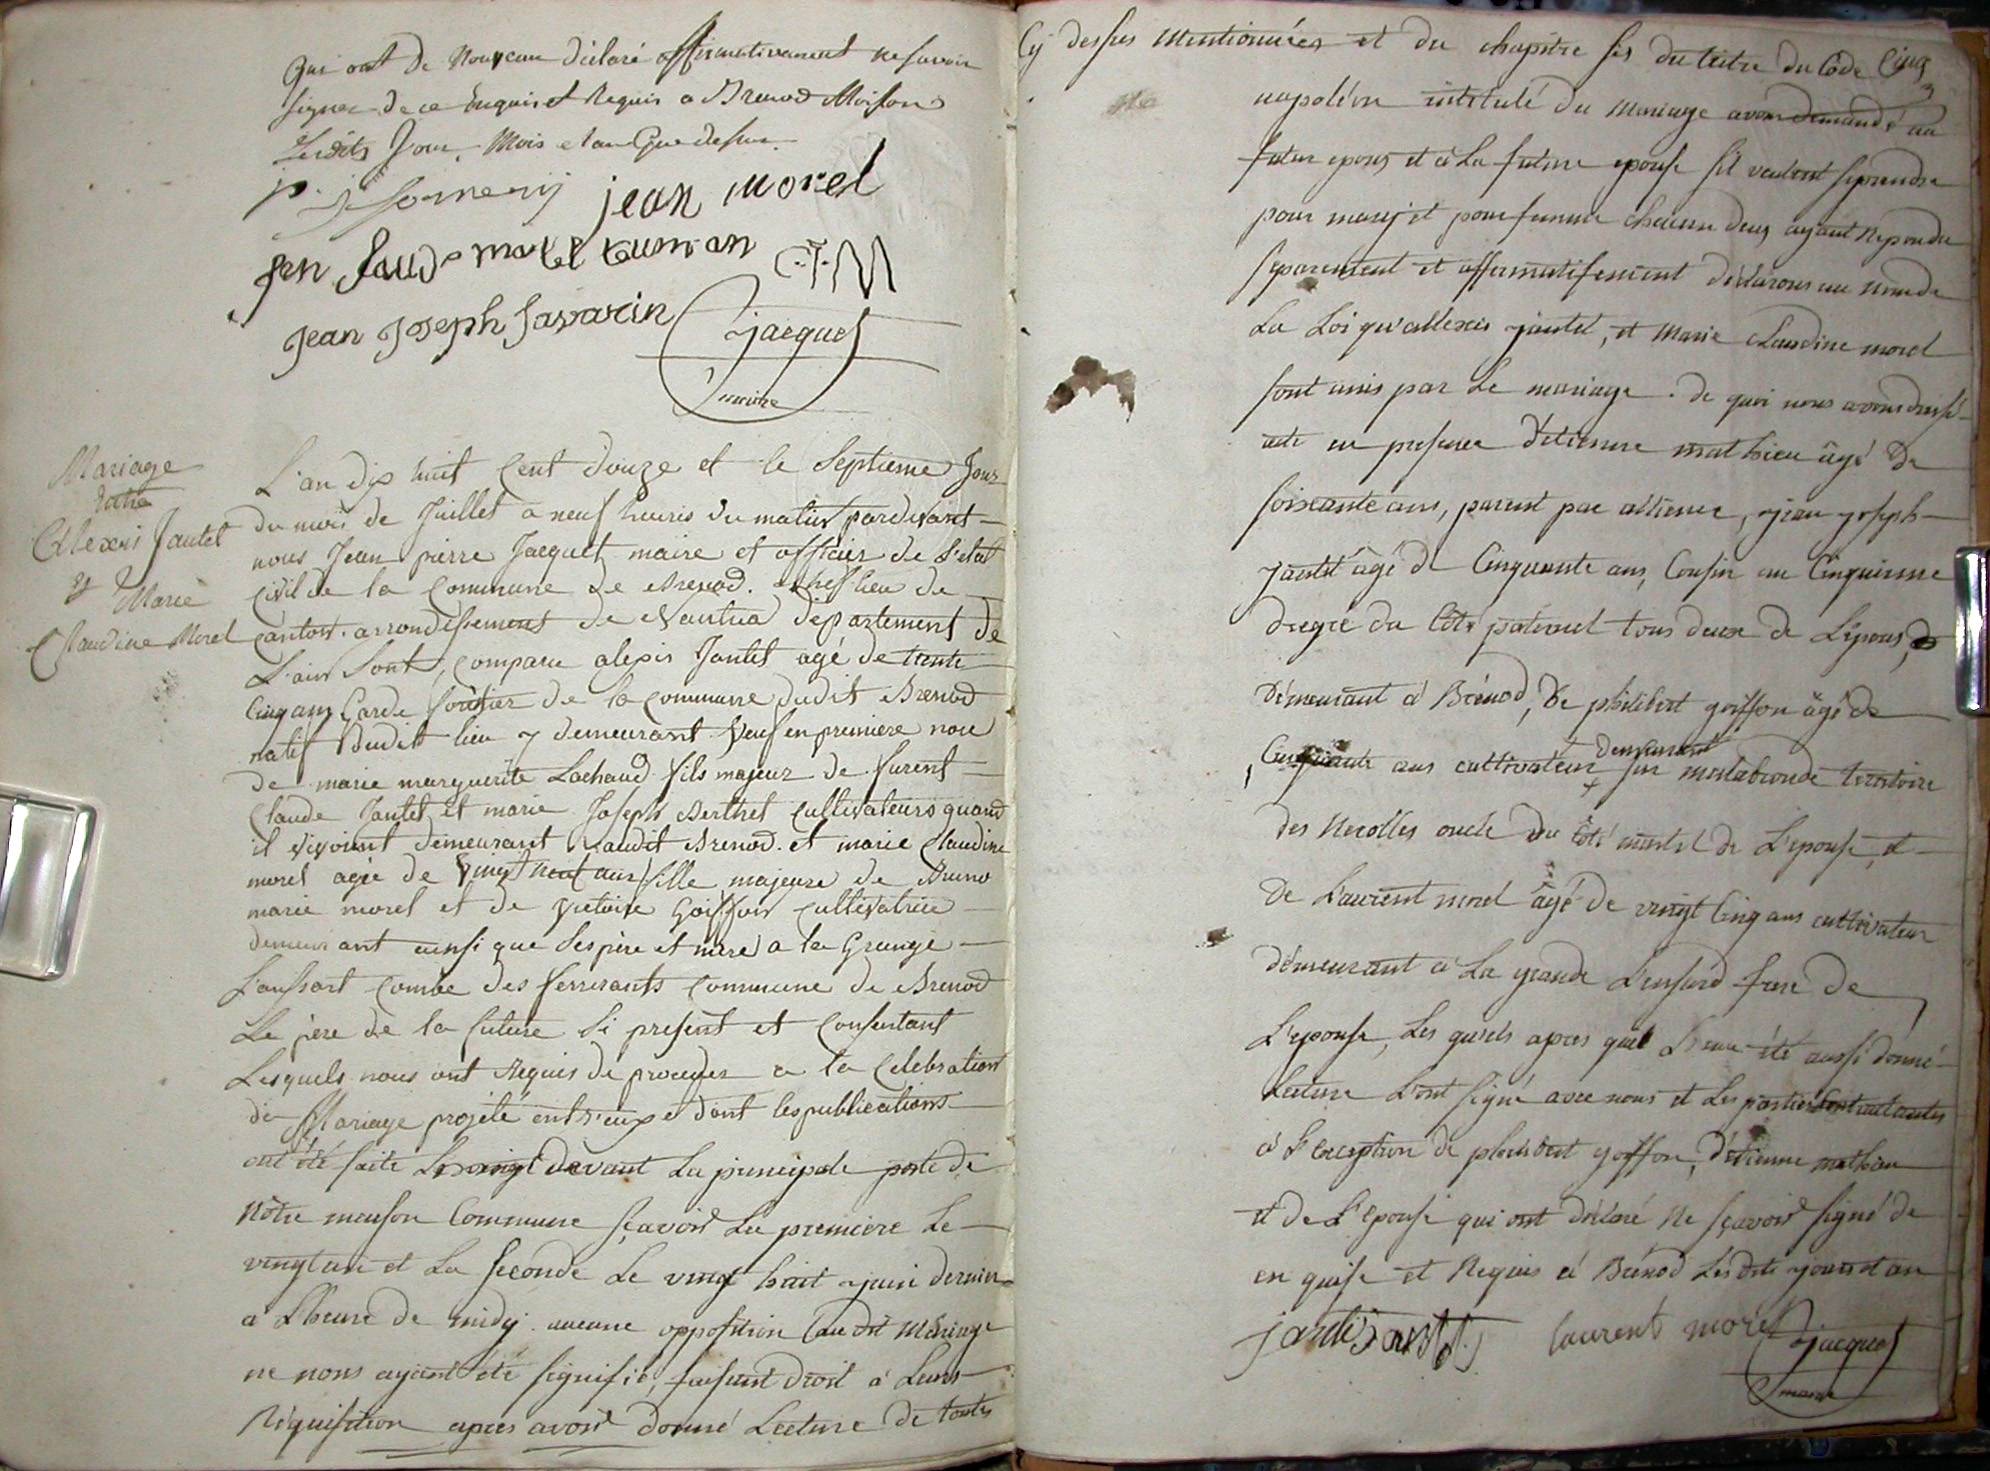 Qui ont de Nouveau déclaré affirmativement ne savoir
signer de ce Enquis et Requis a Brenod Maison
Lesdits Jour, Mois et an Que dessus.
jean morel
jean Joseph Savarin
Jacquet
maire
Mariage
Entre
Alexis Jantet
et Marie
Claudine Morel
L'an dix huit Cent douze et le Septieme Jour
du mois de Juillet a neuf heures du matin pardevant
nous Jean pierre Jacquet maire et officier de l'etat
civil de la Commune de Brenod. chef lieu de
canton. arrondissement de Nantua departement de
L'ain Sont, comparu alexis Jantet agé de trente
Cinq ans Garde forêtier de la commune dudit Brenod
natif dudit lieu y demeurant Veuf en premiere noce
de marie marguerite Lachaud fils majeur de furent
Claude Jantet et marie Joseph Berthet cultivateurs quand
il vivoint demeurant audit Brenod. et marie Claudine
morel agée de Vingt neuf ans fille majeure de Bruno
marie morel et de Victoire Goiffon cultivatrice
demeurant ainsi que Ses père et mere a la Grange
Lanssart combe des ferrerants commune de Brenod
Le père de la future Si present et Consentant
Lesquels nous ont Requis de proceder a la Celebration
de Mariage projété entr'eux et dont les publications
ont été faite devant La principale porte de
Nôtre maison Commune sçavoir La premiere Le
vingt un et La Seconde Le vingt huit juin dernier
a L'heure de midy. aucune opposition audit Mariage
ne nous ayant été signifié, faisant droit à Leurs
Réquisition apres avoir donné Lecture de toutes
Cinq
Cy dessus Mentionnées et du chapitre six du titre du Code
napoléon intitulé du Mariage avons demandé au
futur epoux et à La future epouse S'il veulent se prendre
pour mary et pour femme chacun deux ayant Répondu
séparement et affirmatifement déclarons au nom de
La Loi qu'allexis jantet, et Marie Claudine morel
sont unis par Le mariage. de quoi nous avons dressé
acte en presence d'étienne mathieu âgé de
soixante ans, parent par allience, jean joseph
jantet âgé de Cinquante ans, Cousin au Cinquieme
degré du Côté paternel tous deux de L'époux,
démeurant à Brénod, De philibert goiffon âgé de
Cinquante ans cultivateur demeurant sur territoire
des Nerolles oncle du côté mat.l de L'epouse, et
de Laurent morel âgé de vingt Cinq ans cultivateur
démeurant à La grande frere de
L'epouse, Les quels apres quil Leur été aussi donné
Lecture L'ont signé avec nous et Les parties Contractantes
à L'exception de philibert goiffon, d'étienne mathieu
et de L'epouse qui ont déclaré Ne sçavoir signé de
en quise et Requis à Brénod Lesdits jours et an
Laurent morel
Jacquet
maire